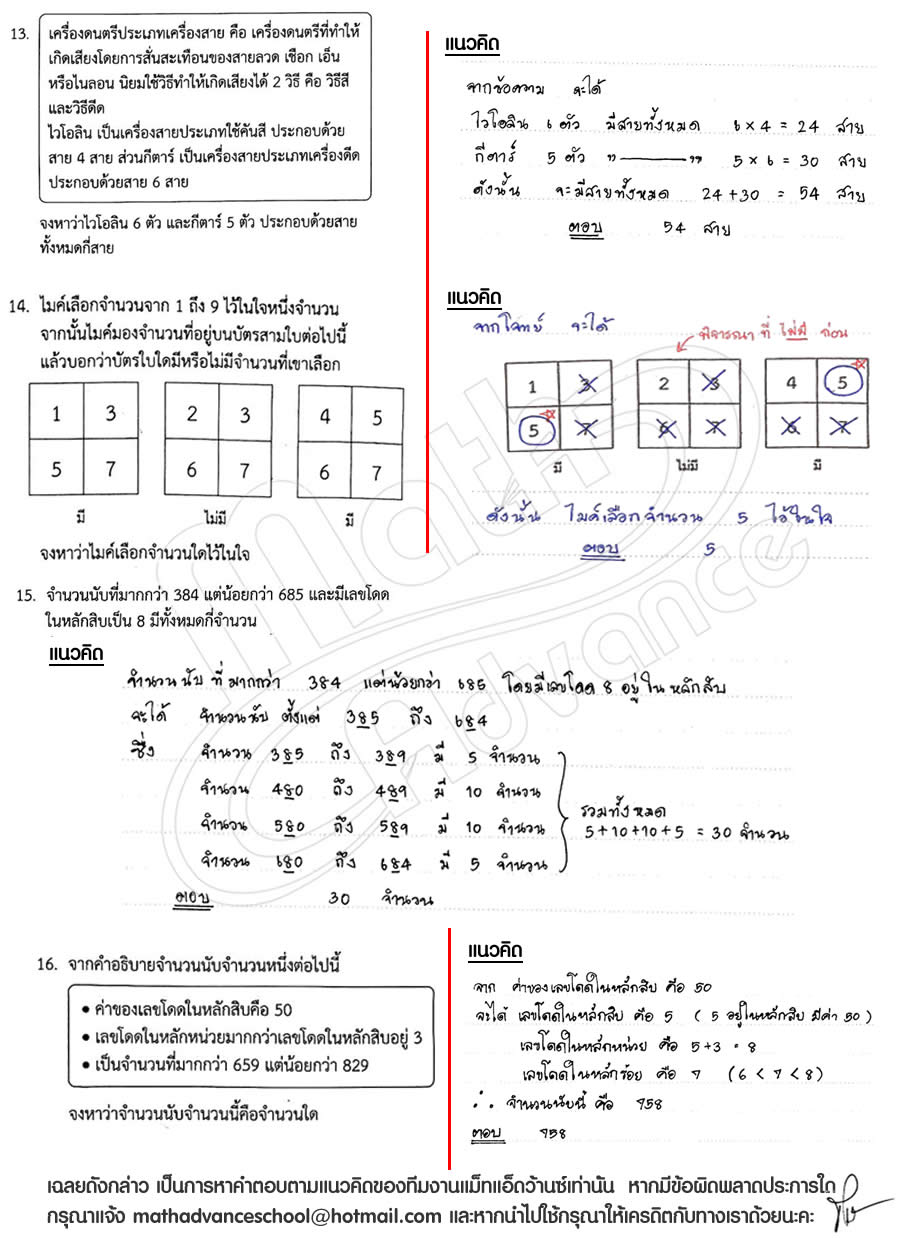 13. เครื่องดนตรีประเภทเครื่องสาย คือ เครื่องดนตรีที่ทำให้
เกิดเสียงโดยการสั่นสะเทือนของสายลวด เชือก เอ็น
หรือไนลอน นิยมใช้วิธีทำให้เกิดเสียงได้ 2 วิธี คือ วิธีสี
และวิธีดีด
ไวโอลิน เป็นเครื่องสายประเภทใช้คันสี ประกอบด้วย
สาย 4 สาย ส่วนกีตาร์ เป็นเครื่องสายประเภทเครื่องดีด
ประกอบด้วยสาย 6 สาย
จงหาว่าไวโอลิน 6 ตัว และกีตาร์ 5 ตัว ประกอบด้วยสาย
ทั้งหมดกี่สาย
แนวคิด
จากข้อความ จะได้
ไวโอลิน 6 ตัว มีสายทั้งหมด 6 × 4 = 24 สาย
กีตาร์ 5 ตัว " ——— " 5 × 6 = 30 สาย
ดังนั้น จะมีสายทั้งหมด 24 + 30 = 54 สาย
ตอบ 54 สาย
14. ไมค์เลือกจำนวนจาก 1 ถึง 9 ไว้ในใจหนึ่งจำนวน
จากนั้นไมค์มองจำนวนที่อยู่บนบัตรสามใบต่อไปนี้
แล้วบอกว่าบัตรใบใดมีหรือไม่มีจำนวนที่เขาเลือก
1 3 2 3 4 5
5 7 6 7 6 7
มี ไม่มี มี
จงหาว่าไมค์เลือกจำนวนใดไว้ในใจ
แนวคิด
จากโจทย์ จะได้
พิจารณาที่ ไม่มี ก่อน
1 3 2 3 4 5
5 7 6 7 6 7
มี ไม่มี มี
ดังนั้น ไมค์เลือกจำนวน 5 ไว้ในใจ
ตอบ 5
15. จำนวนนับที่มากกว่า 384 แต่น้อยกว่า 685 และมีเลขโดด
ในหลักสิบเป็น 8 มีทั้งหมดกี่จำนวน
แนวคิด
จำนวนนับ ที่ มากกว่า 384 แต่น้อยกว่า 685 โดยมีเลขโดด 8 อยู่ใน หลักสิบ
จะได้ จำนวนนับ ตั้งแต่ 385 ถึง 684
ซึ่ง จำนวน 385 ถึง 389 มี 5 จำนวน
จำนวน 480 ถึง 489 มี 10 จำนวน
จำนวน 580 ถึง 589 มี 10 จำนวน
จำนวน 680 ถึง 684 มี 5 จำนวน
รวมทั้งหมด
5 + 10 + 10 + 5 = 30 จำนวน
ตอบ 30 จำนวน
16. จากคำอธิบายจำนวนนับจำนวนหนึ่งต่อไปนี้
• ค่าของเลขโดดในหลักสิบคือ 50
• เลขโดดในหลักหน่วยมากกว่าเลขโดดในหลักสิบอยู่ 3
• เป็นจำนวนที่มากกว่า 659 แต่น้อยกว่า 829
จงหาว่าจำนวนนับจำนวนนี้คือจำนวนใด
แนวคิด
จาก ค่าของเลขโดดในหลักสิบ คือ 50
จะได้ เลขโดดในหลักสิบ คือ 5 ( 5 อยู่ในหลักสิบ มีค่า 50 )
เลขโดดในหลักหน่วย คือ 5 + 3 = 8
เลขโดดในหลักร้อย คือ 7 ( 6 < 7 < 8 )
∴ จำนวนนับนี้ คือ 758
ตอบ 758
Math Advance
เฉลยดังกล่าว เป็นการหาคำตอบตามแนวคิดของทีมงานแม็ทแอ็ดว้านซ์เท่านั้น หากมีข้อผิดพลาดประการใด
กรุณาแจ้ง mathadvanceschool@hotmail.com และหากนำไปใช้กรุณาให้เครดิตกับทางเราด้วยนะคะ